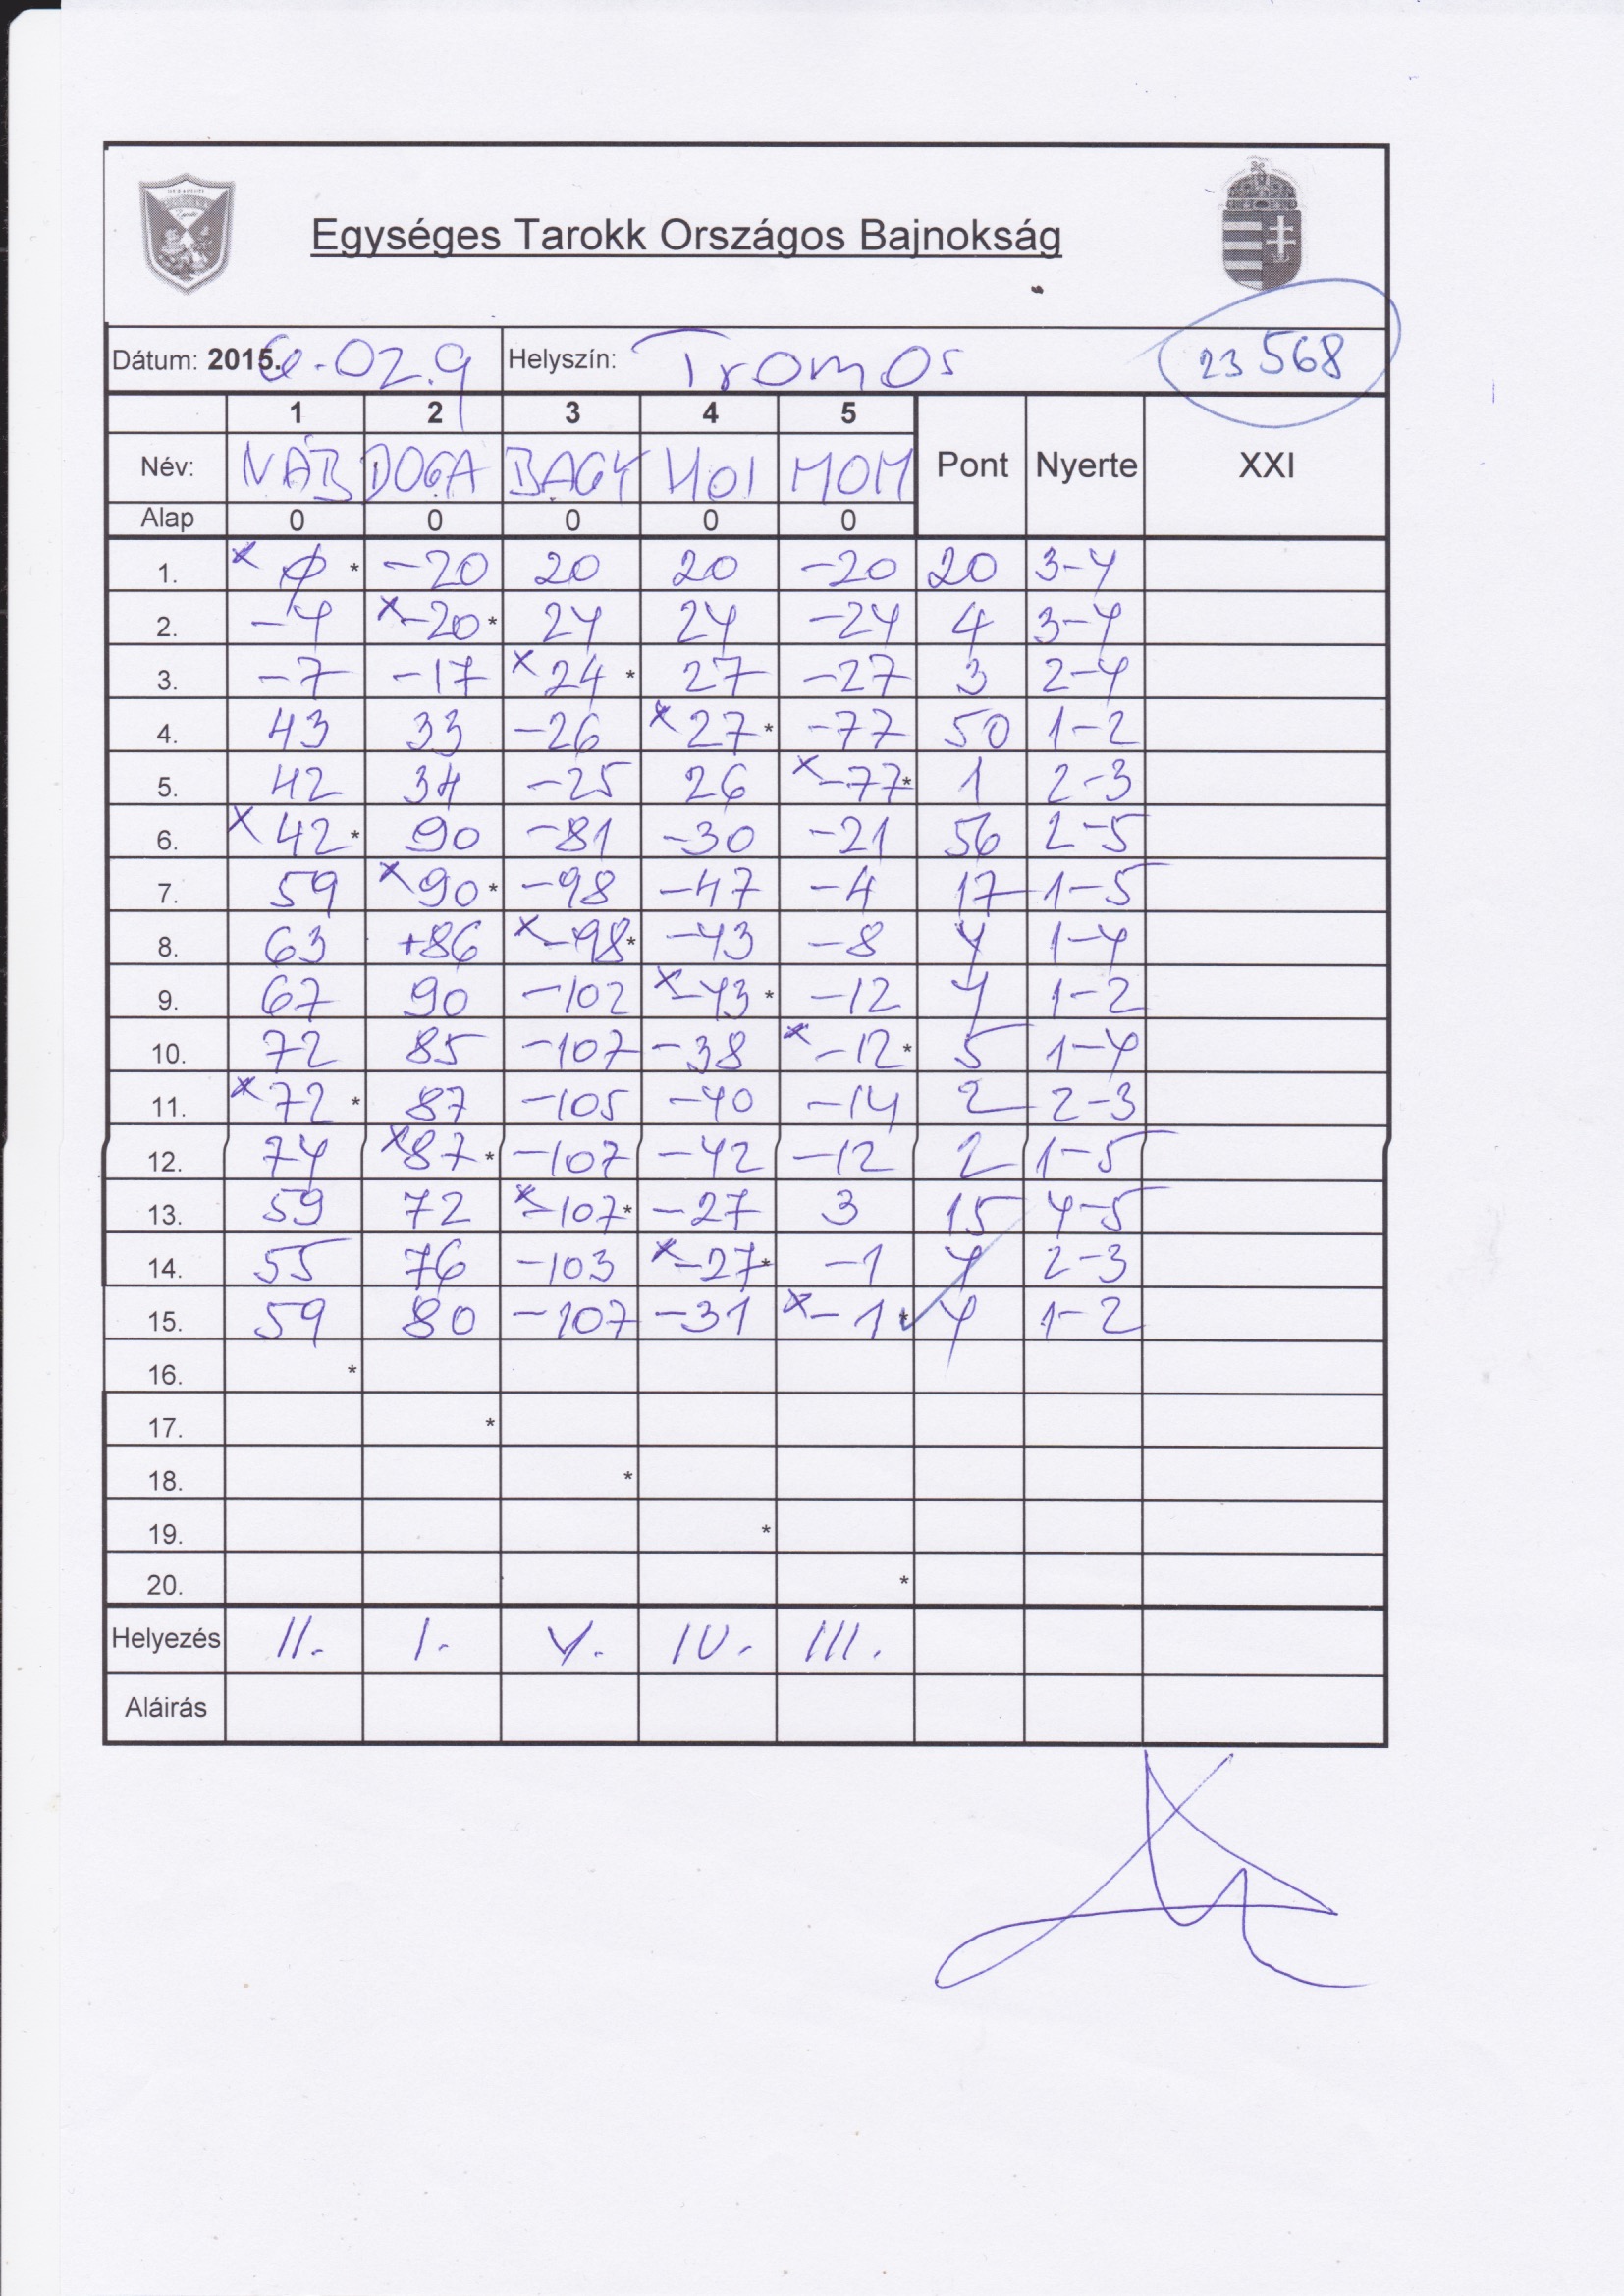 Egységes Tarokk Országos Bajnokság
Dátum: 2015. 6.02.9 Helyszín: Tromos 23568
1 2 3 4 5
Név: NÁB DOGA BAGY HOI MOM Pont Nyerte XXI
Alap 0 0 0 0 0
1. x 0 * -20 20 20 -20 20 3-4
2. -4 x -20 * 24 24 -24 4 3-4
3. -7 -17 x 24 * 27 -27 3 2-4
4. 43 33 -26 x 27 * -77 50 1-2
5. 42 34 -25 26 x -77 * 1 2-3
6. x 42 * 90 -81 -30 -21 56 2-5
7. 59 x 90 * -98 -47 -4 17 1-5
8. 63 +86 x -98 * -43 -8 4 1-4
9. 67 90 -102 x -43 * -12 4 1-2
10. 72 85 -107 -38 x -12 * 5 1-4
11. x 72 * 87 -105 -40 -14 2 2-3
12. 74 x 87 * -107 -42 -12 2 1-5
13. 59 72 x -107 * -27 3 15 4-5
14. 55 76 -103 x -27 * -1 4 2-3
15. 59 80 -107 -31 x -1 * 4 1-2
16. *
17. *
18. *
19. *
20. *
Helyezés II. I. V. IV. III.
Aláirás